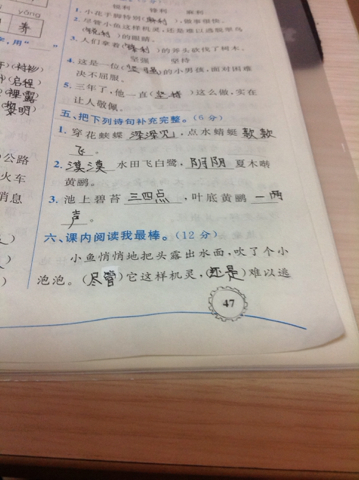 yǒng
养
锐利 锋利 胜利
1. 小花子胸特别(
尽管小鱼这样机灵,还是难以逃脱翠鸟
(锐利)的眼睛。
3. 人们拿着(锋利)的斧头砍伐了树木。
坚强 坚持
4. 这是一位(坚强)的小男孩,面对困难
决不屈服。
5. 三年了,他一直(坚持)这么做,实在
让人敬佩。
五、把下列诗句补充完整。(6分)
1. 穿花蛱蝶 深深见,点水蜻蜓 款款
飞。
2. 漠漠 水田飞白鹭,阴阴 夏木啭
黄鹂。
3. 池上碧苔 三四点,叶底黄鹂 一两
声。
六、课内阅读我最棒。(12分)
小鱼悄悄地把头露出水面,吹了个小
泡泡。(尽管)它这样机灵,(还是)难以逃
47
下(特衫)
(启程)
(裸露)
(黎明)
公路
火车
消息